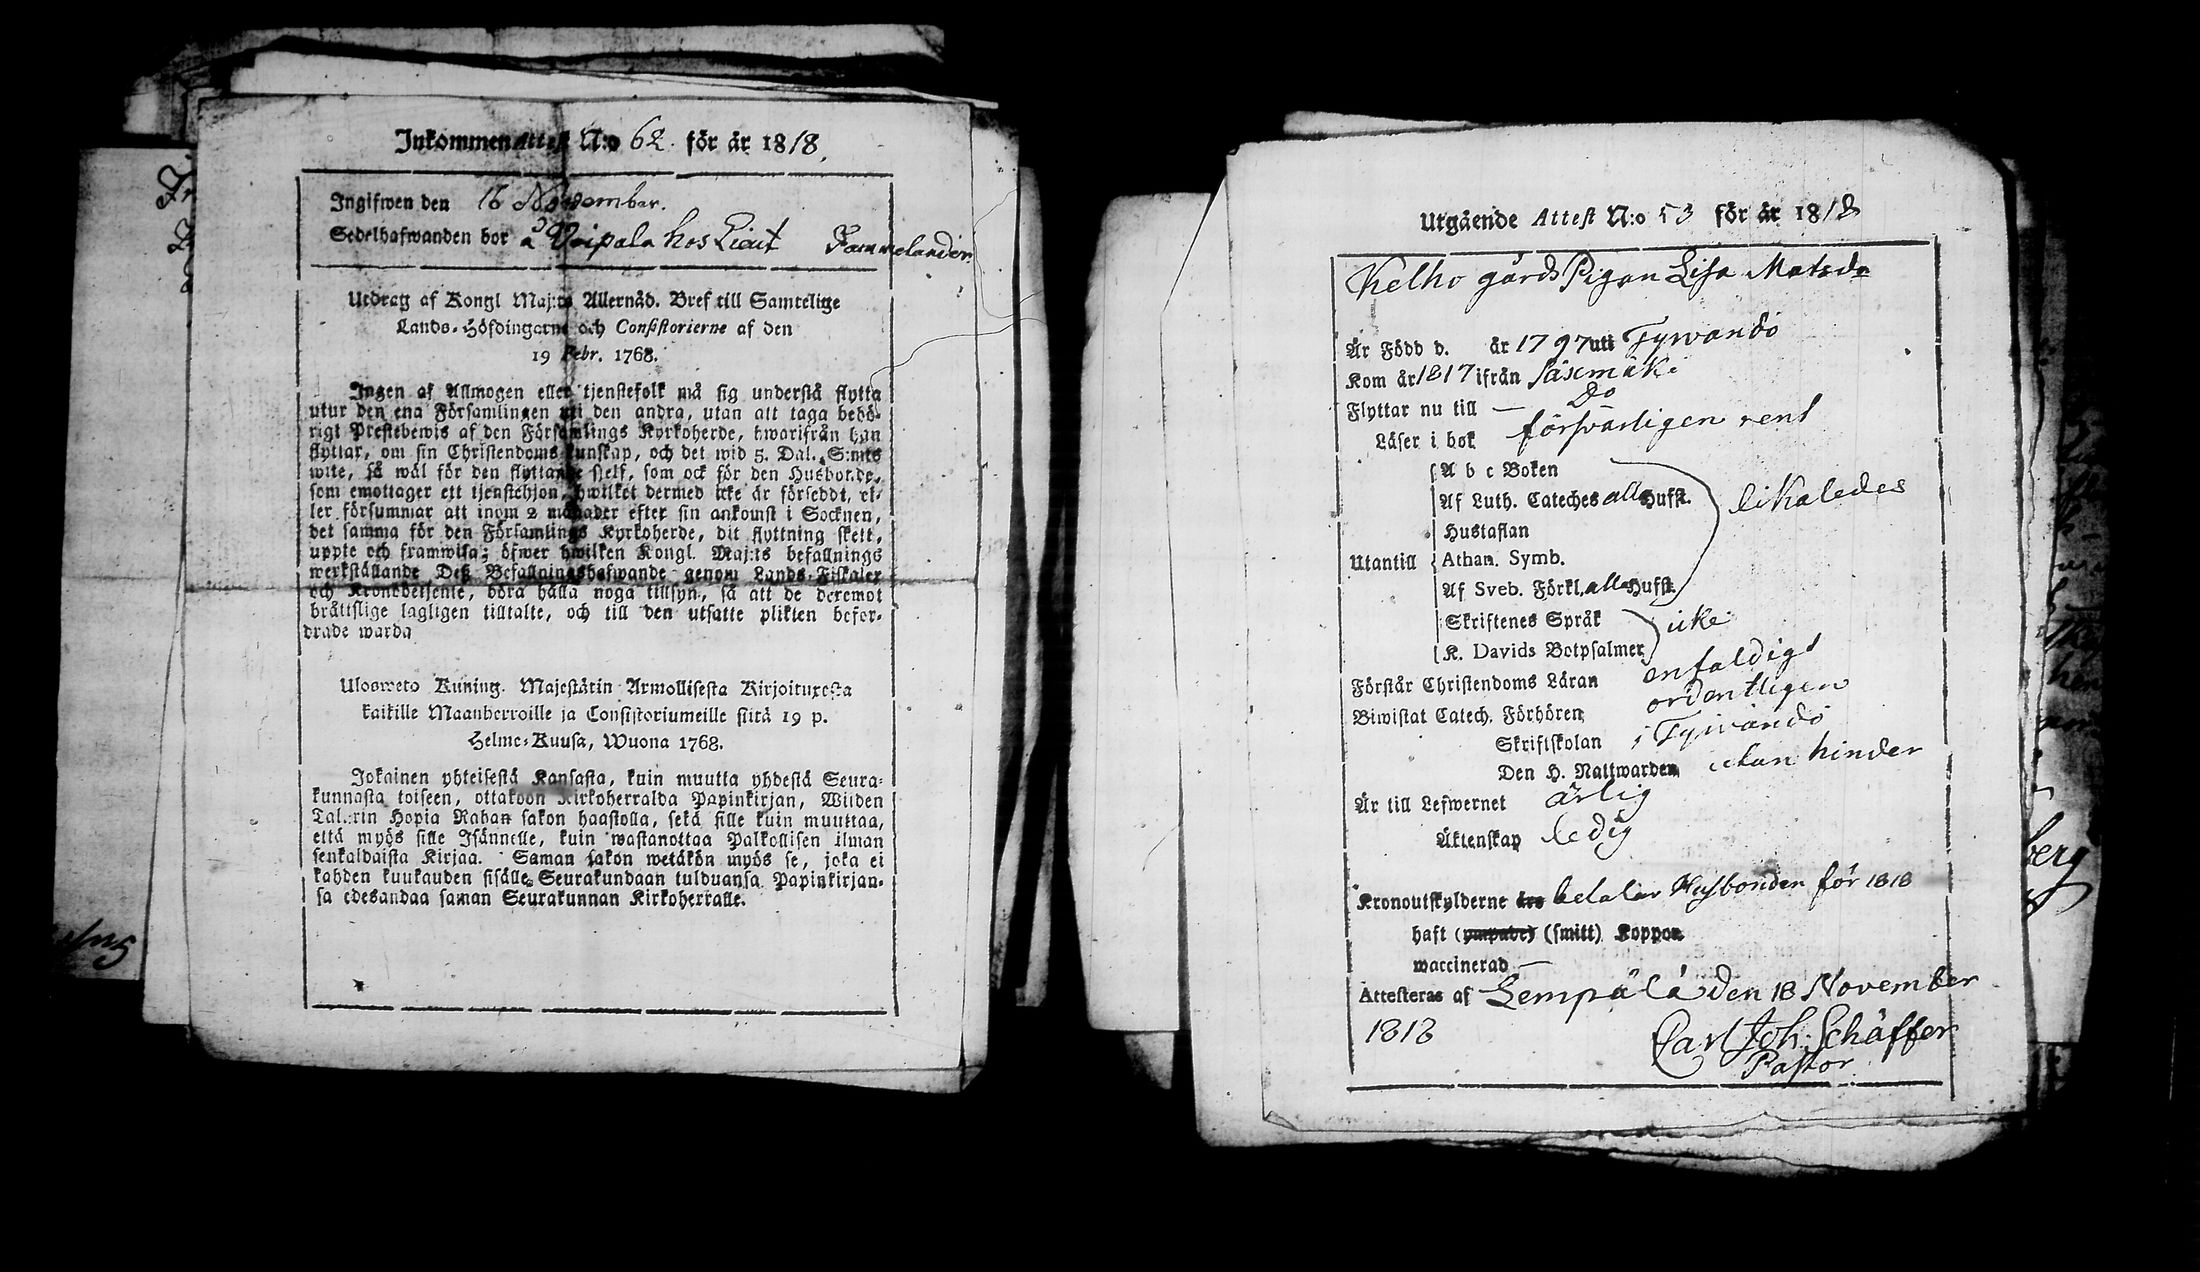 Inkommen Attest N:o 62. för år 1818.
Ingifwen den 16 November.
Sedelhafwanden bor å Voipala hos Lieut Fammelander
Utdrag af Kongl Maj:ts Allernåd. Bref till Samtelige
Lands-Höfdingarne och Consistorierne af den
19 Febr. 1768.
Ingen af Allmogen eller tjenstefolk må sig understå flytta
utur den ena Församlingen uti den andra, utan att taga behö-
rigt Prestebewis af den Församlings Kyrkoherde, hwarifrån han
flyttar, om sin Christendoms kunskap, och det wid 5. Dal. S:mts
wite, så wäl för den flyttande sjelf, som ock för den Husbonde,
som emottager ett tjenstehjon, hwilket dermed icke är försedt, el-
ler försummar att inom 2 månader efter sin ankomst i Socknen,
det samma för den Församlings Kyrkoherde, dit flyttning skett,
uppte och framwisa; öfwer hwilken Kongl. Maj:ts befallnings
werkställande Deß Befallningshafwande genom Lands-Fiskaler
och Kronobetjente, böra hålla noga tillsyn, så att de deremot
bråttslige lagligen tilltalte, och till den utsatte plikten befor-
drade warda
Ulosweto Kuning. Majestätin Armollisesta Kirjoituxesta
kaikille Maanherroille ja Consistoriumeille siitä 19 p.
Helme-Kuusa, Wuona 1768.
Jokainen yhteisestä Kansasta, kuin muutta yhdestä Seura-
kunnasta toiseen, ottakoon Kirkoherralda Papinkirjan, Wiiden
Talarin Hopia Rahan sakon haastolla, sekä sille kuin muuttaa,
että myös sille Isännelle, kuin wastanottaa Palkollisen ilman
senkaldaista Kirjaa. Saman sakon wetäkön myös se, joka ei
kahden kuukauden sisälle Seurakundaan tulduansa Papinkirjan-
sa edesandaa saman Seurakunnan Kirkoherralle.
Utgående Attest N:o 53 för år 1818
Kelho gårds Pigan Lisa Matsdr
Är Född d. år 1797 uti Tyrwändö
Kom år 1817 ifrån Säxmäki
Flyttar nu till — Do
Läser i bok försvarligen rent
A b c Boken
Af Luth. Cateches alla Hufst. likaledes
Hustaflan
Utantill Athan. Symb.
Af Sveb. Förkl. alla Hufst.
Skriftenes Språk icke
K. Davids Botpsalmer
Förstår Christendoms Läran enfaldigt
Biwistat Catech. Förhören ordentligen
Skriftskolan i Tyrwändö
Den H. Nattwarden utan hinder
Är till Lefwernet ärlig
Äktenskap ledig
Kronoutskylderne äro betalar Husbonden för 1818
haft (ympade) (smitt) Koppor
waccinerad —
Attesteras af Lempälä den 18 November
1818
Carl Joh. Schäffer
Pastor